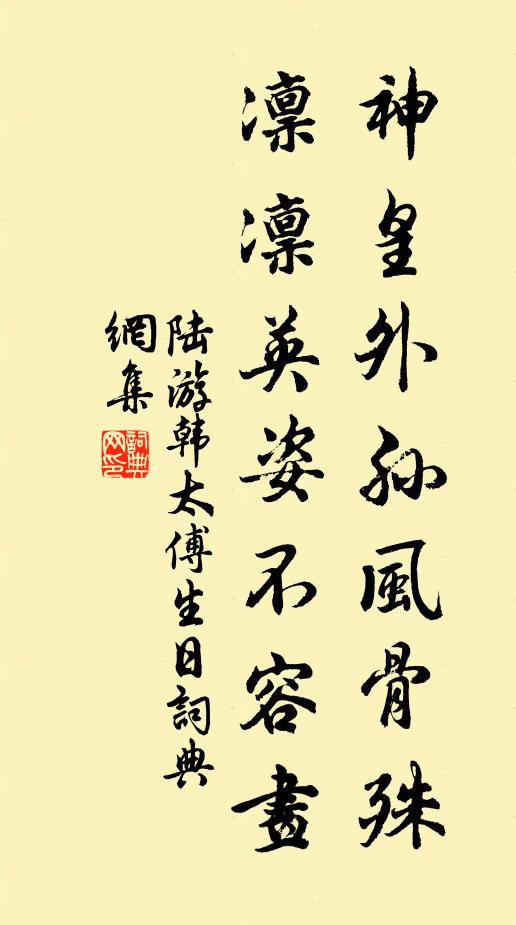 神皇外孫風骨殊
凛凛英姿不容畫
陆游韩太傅生日詞典
網集
詞典网印